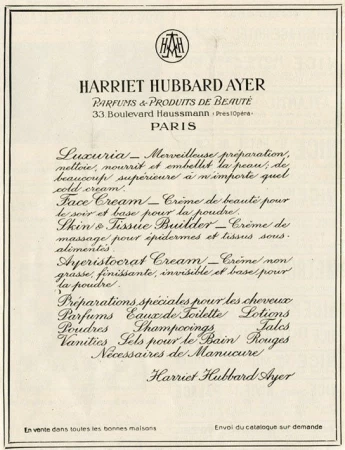 HHA
HARRIET HUBBARD AYER
PARFUMS & PRODUITS DE BEAUTÉ
33 Boulevard Haussmann (Près l'Opéra)
PARIS
Luxuria — Merveilleuse préparation,
nettoie, nourrit et embellit la peau; de
beaucoup supérieure à n'importe quel
cold cream.
Face Cream — Crème de beauté pour
le soir et base pour la poudre.
Skin & Tissue Builder — Crème de
massage pour épidermes et tissus sous-
alimentés.
Ayeristocrat Cream — Crème non
grasse, finissante, invisible et base pour
la poudre.
Préparations spéciales pour les cheveux
Parfums Eaux de Toilette Lotions
Poudres Shampooings Talcs
Vanities Sels pour le Bain Rouges
Nécessaires de Manucure
Harriet Hubbard Ayer
En vente dans toutes les bonnes maisons
Envoi du catalogue sur demande